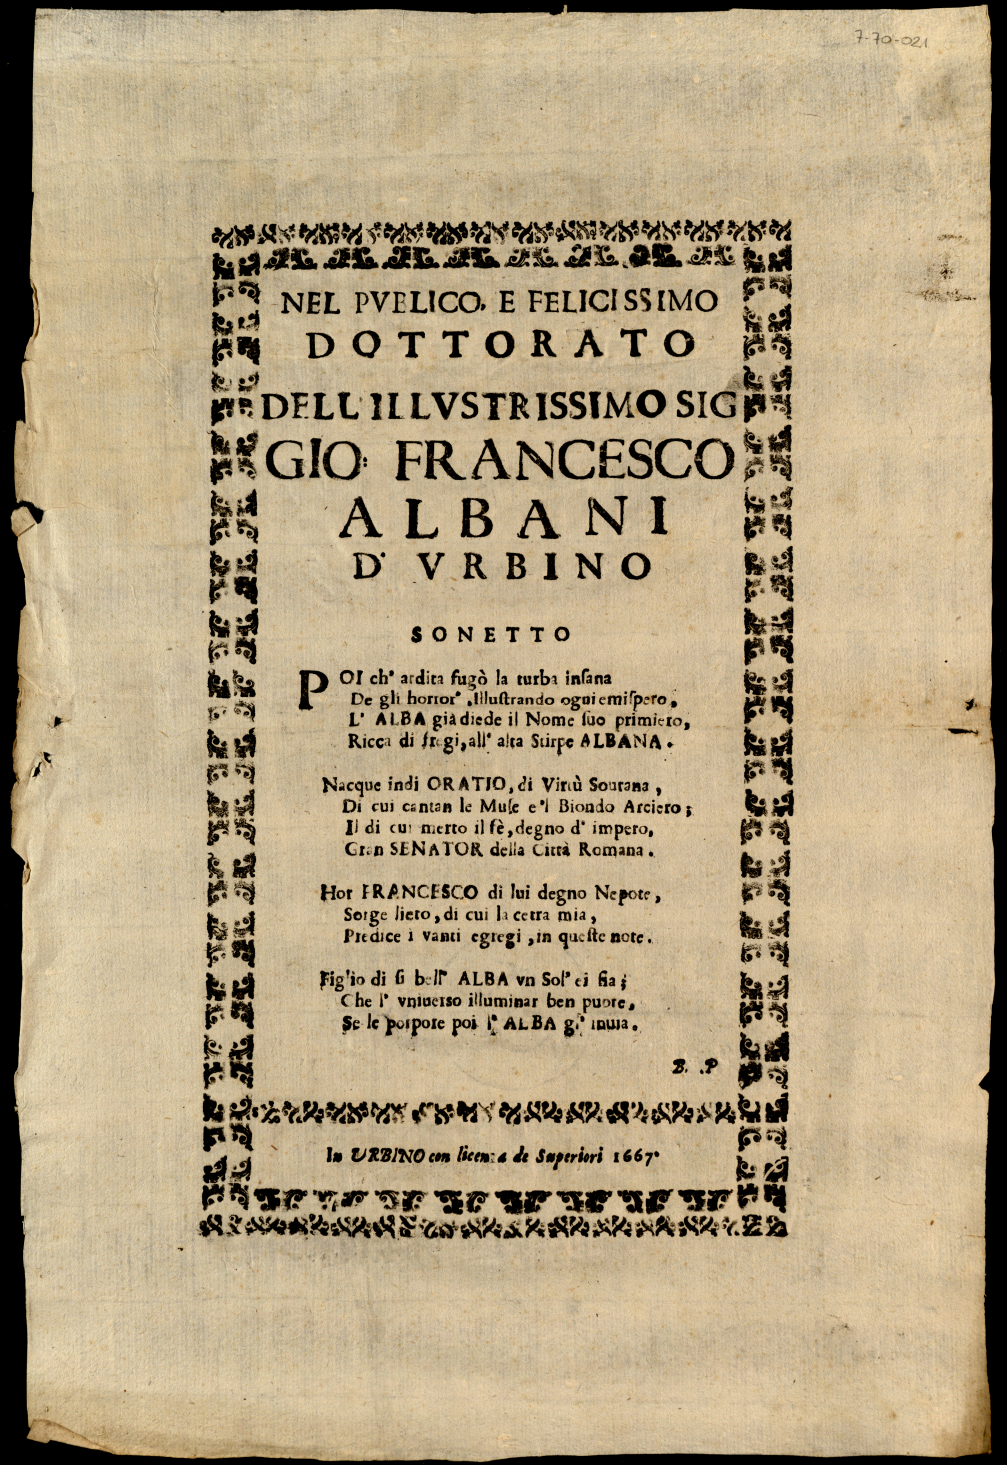 7-70-021
NEL PVELICO, E FELICISSIMO
DOTTORATO
DELL'ILLVSTRISSIMO SIG
GIO: FRANCESCO
ALBANI
D' VRBINO
SONETTO
POI ch' ardita fugò la turba inſana
De gli horror', Illuſtrando ogni emiſpero,
L' ALBA già diede il Nome ſuo primiero,
Ricca di fregi, all' alta Stirpe ALBANA.
Nacque indi ORATIO, di Virtù Sourana,
Di cui cantan le Muſe e'l Biondo Arciero;
Il di cui merto il fè, degno d' impero,
Gran SENATOR della Città Romana.
Hor FRANCESCO di lui degno Nepote,
Sorge lieto, di cui la cetra mia,
Predice i vanti egregi, in queſte note.
Figlio di ſi bell' ALBA vn Sol' ei fia;
Che l' vniuerso illuminar ben puote,
Se le porpore poi l' ALBA gl' inuia.
B. P
In URBINO con licenza de Superiori 1667.